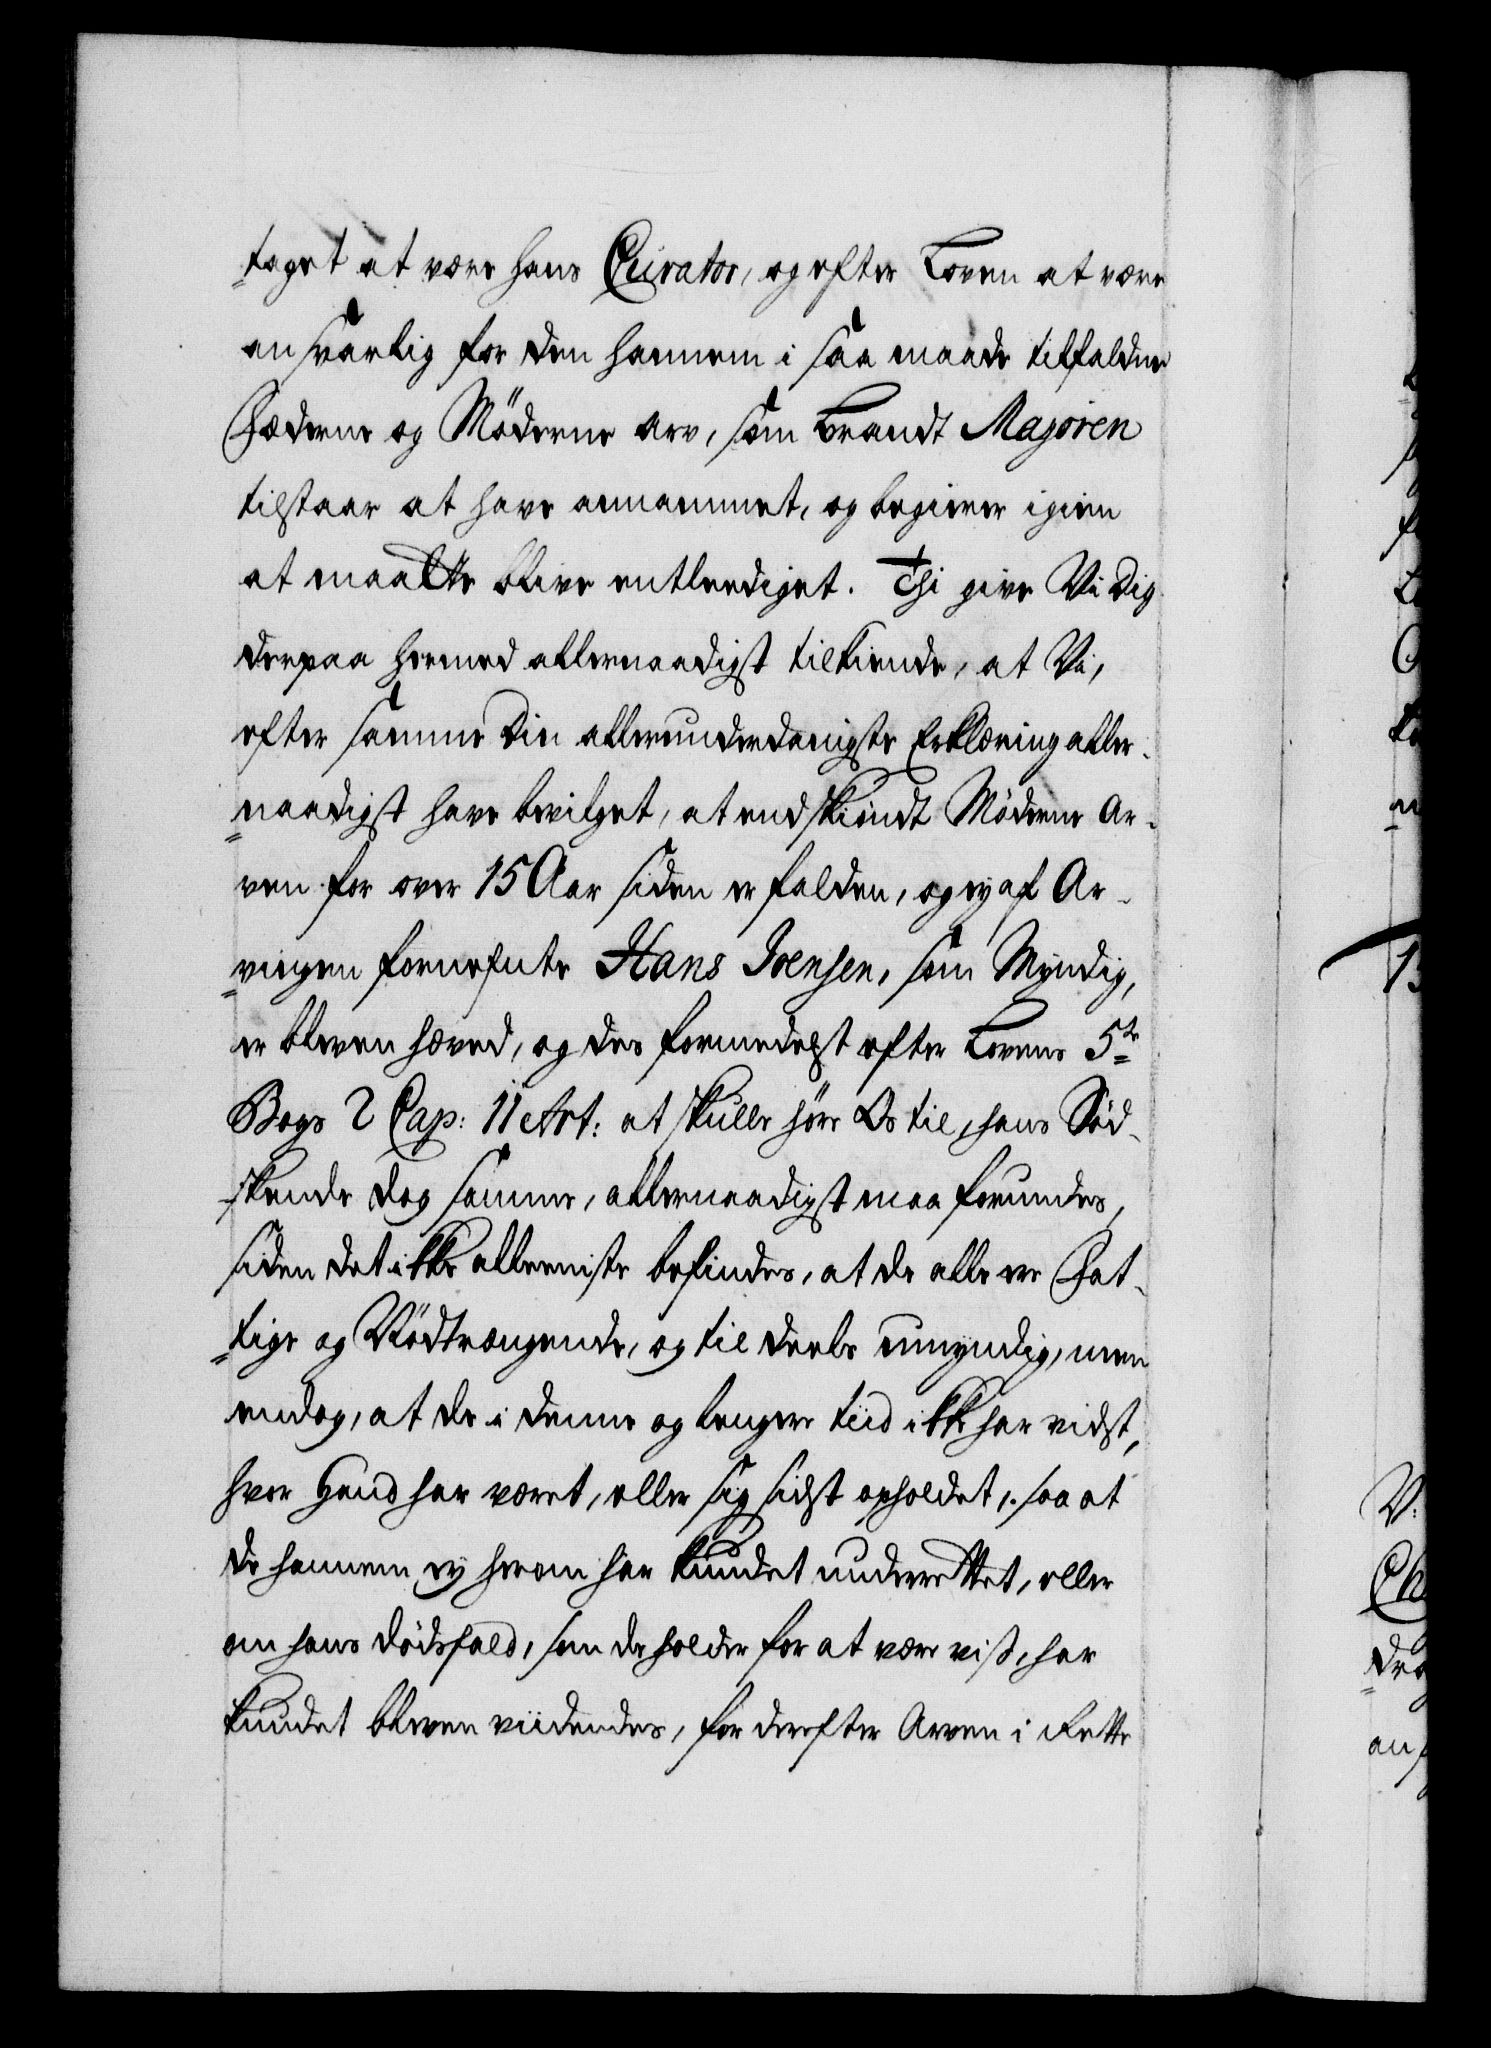 taget at være hans Curator, og efter Loven at være
ansvarlig for den hannem i saa maade tilfaldne
Fæderne og Möderne Arv, som Brandt Majoren
tilstaar at have annammet, og begierer igien
at maatte blive entlediget. Thi give Vi Dig
derpaa hermed allernaadigst tilkiende, at Vi,
efter samme Din allerunderdanigste Erklæring aller-
naadigst have bevilget, at endskiöndt Möderne Ar-
ven for over 15 Aar siden er falden, og ey af Ar-
vingen fornefnte Hans Joensen, som Myndig,
er bleven hæved, og des formedelst efter Lovens 5te
Bogs 2 Cap: 11 Art: at skulle höre Os til, hans Söd-
skende dog samme, allernaadigst maa forundes,
siden det ikke alleeniste befindes, at de alle ere Fat-
tige og Nödtrængende, og til deels umyndig, men
endog, at de i denne og lengere tiid ikke har vidst,
hvor Hand har været, eller sig sidst opholdet, saa at
de hannem ey herom har kundet underrettet, eller
om hans dödsfald, som de holder for at være vist, har
kundet bleven viidendes, for derefter Arven i Rette